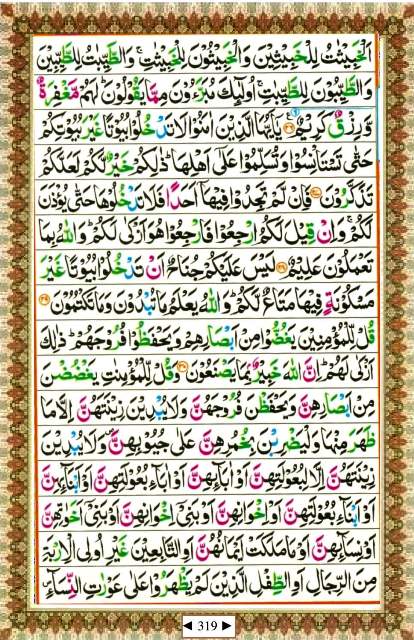 اَلْخَبِيْثٰتُ لِلْخَبِيْثِيْنَ وَالْخَبِيْثُوْنَ لِلْخَبِيْثٰتِ ۚ وَالطَّيِّبٰتُ لِلطَّيِّبِيْنَ
وَالطَّيِّبُوْنَ لِلطَّيِّبٰتِ ۚ اُولٰٓئِكَ مُبَرَّءُوْنَ مِمَّا يَقُوْلُوْنَ ؕ لَهُمْ مَّغْفِرَةٌ
وَّرِزْقٌ كَرِيْمٌ ۝۲۶ يٰۤاَيُّهَا الَّذِيْنَ اٰمَنُوْا لَا تَدْخُلُوْا بُيُوْتًا غَيْرَ بُيُوْتِكُمْ
حَتّٰى تَسْتَاْنِسُوْا وَتُسَلِّمُوْا عَلٰٓى اَهْلِهَا ؕ ذٰلِكُمْ خَيْرٌ لَّكُمْ لَعَلَّكُمْ
تَذَكَّرُوْنَ ۝۲۷ فَاِنْ لَّمْ تَجِدُوْا فِيْهَاۤ اَحَدًا فَلَا تَدْخُلُوْهَا حَتّٰى يُؤْذَنَ
لَكُمْ ۚ وَاِنْ قِيْلَ لَكُمُ ارْجِعُوْا فَارْجِعُوْا هُوَ اَزْكٰى لَكُمْ ؕ وَاللّٰهُ بِمَا
تَعْمَلُوْنَ عَلِيْمٌ ۝۲۸ لَيْسَ عَلَيْكُمْ جُنَاحٌ اَنْ تَدْخُلُوْا بُيُوْتًا غَيْرَ
مَسْكُوْنَةٍ فِيْهَا مَتَاعٌ لَّكُمْ ؕ وَاللّٰهُ يَعْلَمُ مَا تُبْدُوْنَ وَمَا تَكْتُمُوْنَ ۝۲۹
قُلْ لِّلْمُؤْمِنِيْنَ يَغُضُّوْا مِنْ اَبْصَارِهِمْ وَيَحْفَظُوْا فُرُوْجَهُمْ ؕ ذٰلِكَ
اَزْكٰى لَهُمْ ؕ اِنَّ اللّٰهَ خَبِيْرٌۢ بِمَا يَصْنَعُوْنَ ۝۳۰ وَقُلْ لِّلْمُؤْمِنٰتِ يَغْضُضْنَ
مِنْ اَبْصَارِهِنَّ وَيَحْفَظْنَ فُرُوْجَهُنَّ وَلَا يُبْدِيْنَ زِيْنَتَهُنَّ اِلَّا مَا
ظَهَرَ مِنْهَا وَلْيَضْرِبْنَ بِخُمُرِهِنَّ عَلٰى جُيُوْبِهِنَّ ۪ وَلَا يُبْدِيْنَ
زِيْنَتَهُنَّ اِلَّا لِبُعُوْلَتِهِنَّ اَوْ اٰبَآئِهِنَّ اَوْ اٰبَآءِ بُعُوْلَتِهِنَّ اَوْ اَبْنَآئِهِنَّ
اَوْ اَبْنَآءِ بُعُوْلَتِهِنَّ اَوْ اِخْوَانِهِنَّ اَوْ بَنِيْۤ اِخْوَانِهِنَّ اَوْ بَنِيْۤ اَخَوٰتِهِنَّ
اَوْ نِسَآئِهِنَّ اَوْ مَا مَلَكَتْ اَيْمَانُهُنَّ اَوِ التّٰبِعِيْنَ غَيْرِ اُولِى الْاِرْبَةِ
مِنَ الرِّجَالِ اَوِ الطِّفْلِ الَّذِيْنَ لَمْ يَظْهَرُوْا عَلٰى عَوْرٰتِ النِّسَآءِ ۪
◄ 319 ►